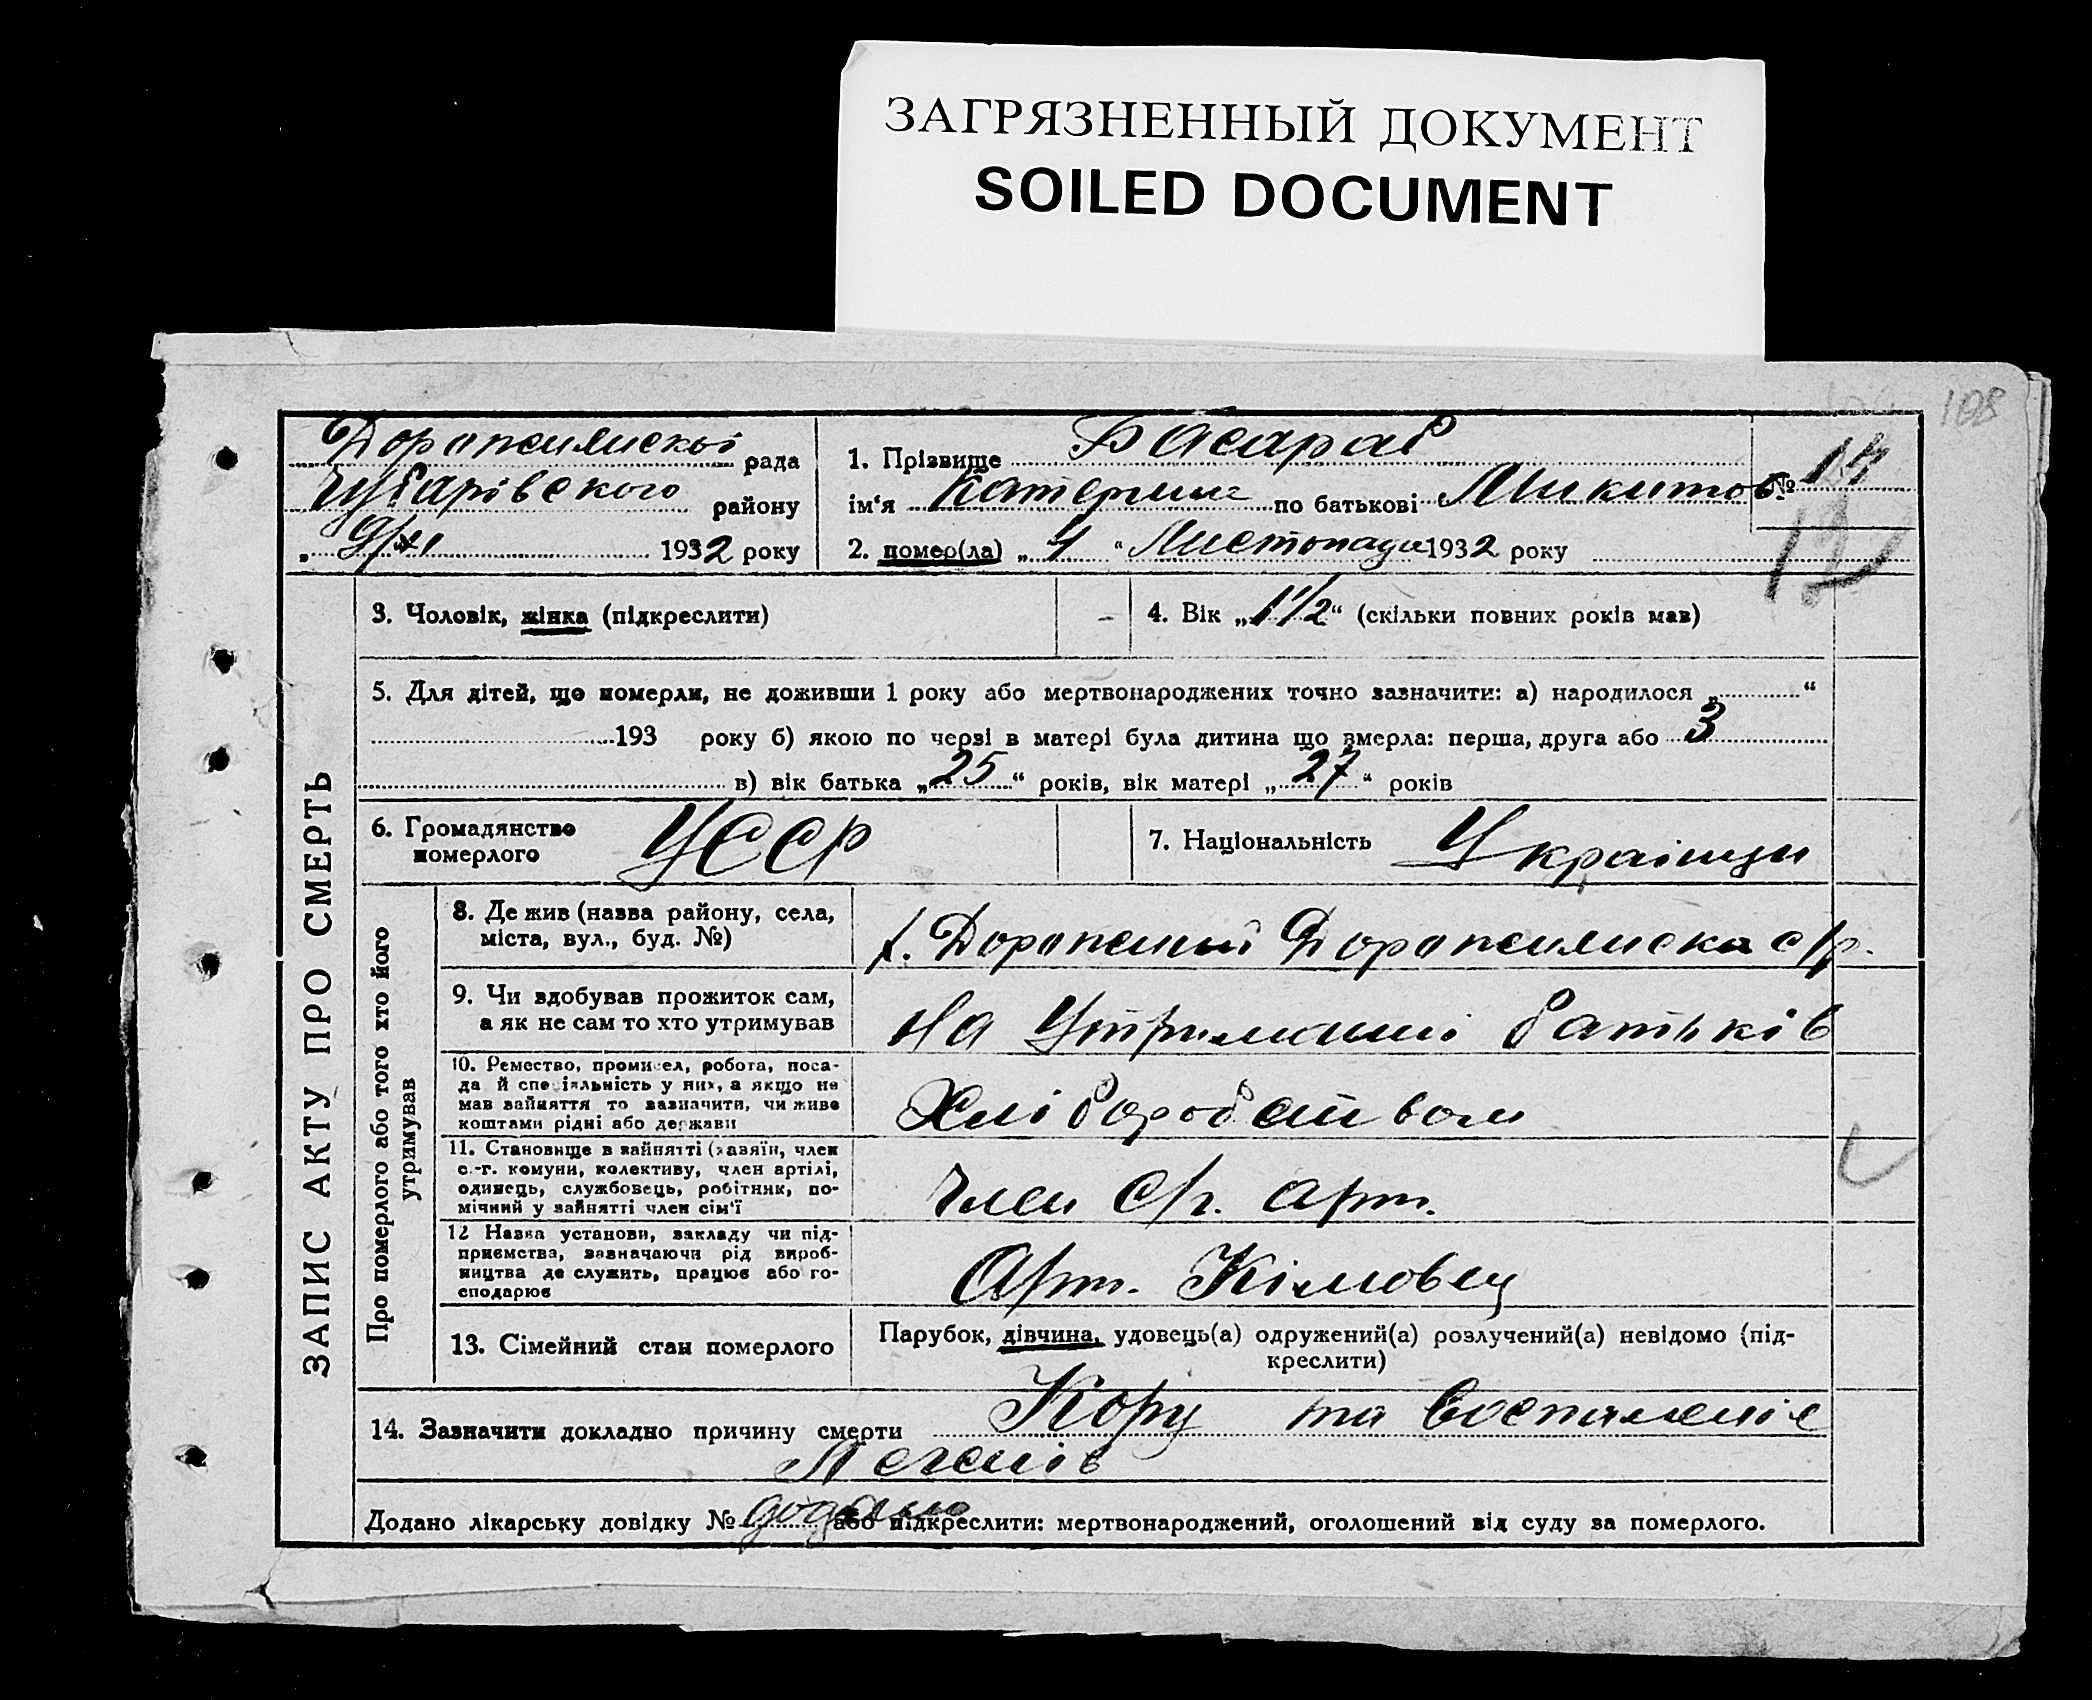 ЗАГРЯЗНЕННЫЙ ДОКУМЕНТ
SOILED DOCUMENT
108
рада
Чубарівского району
„ 9/XI 1932 року
1. Прізвище Басараб
ім‘я Катерина по батькові Микитов.
№ 14
12
2. помер(ла) „ 4 “ Листопада 1932 року
ЗАПИС АКТУ ПРО СМЕРТЬ
3. Чоловік, жінка (підкреслити) -
4. Вік „1 1/2“ (скільки повних років мав)
5. Для дітей, що померли, не доживши 1 року або мертвонароджених точно зазначити: а) народилося „ “
193 року б) якою по черзі в матері була дитина що вмерла: перша, друга або 3
в) вік батька „25“ років, вік матері „27“ років
6. Громадянство
померлого УССР
7. Національність Українци
Про померлого або того хто його
утримував
8. Де жив (назва району, села,
міста, вул., буд. №)
с/р.
9. Чи здобував прожиток сам,
а як не сам то хто утримував
На Утриманні батьків
10. Ремество, промисел, робота, поса-
да й спеціяльність у них, а якщо не
мав зайняття то зазначити, чи живе
коштами рідні або держави
Хліборобством
11. Становище в зайнятті (хазяїн, член
с.-г. комуни, колективу, член артілі,
одинець, службовець, робітник, по-
мічний у зайнятті член сім‘ї
Член С/г. арт.
12 Назва установи, закладу чи під-
приємства, зазначаючи рід вироб-
ництва де служить, працює або го-
сподарює
Арт. Кімовец
13. Сімейний стан померлого
Парубок, дівчина, удовець(а) одружений(а) розлучений(а) невідомо (під-
креслити)
14. Зазначити докладно причину смерти Кору та Воспаленіе
Легенів
Додано лікарську довідку № додано або підкреслити: мертвонароджений, оголошений від суду за померлого.